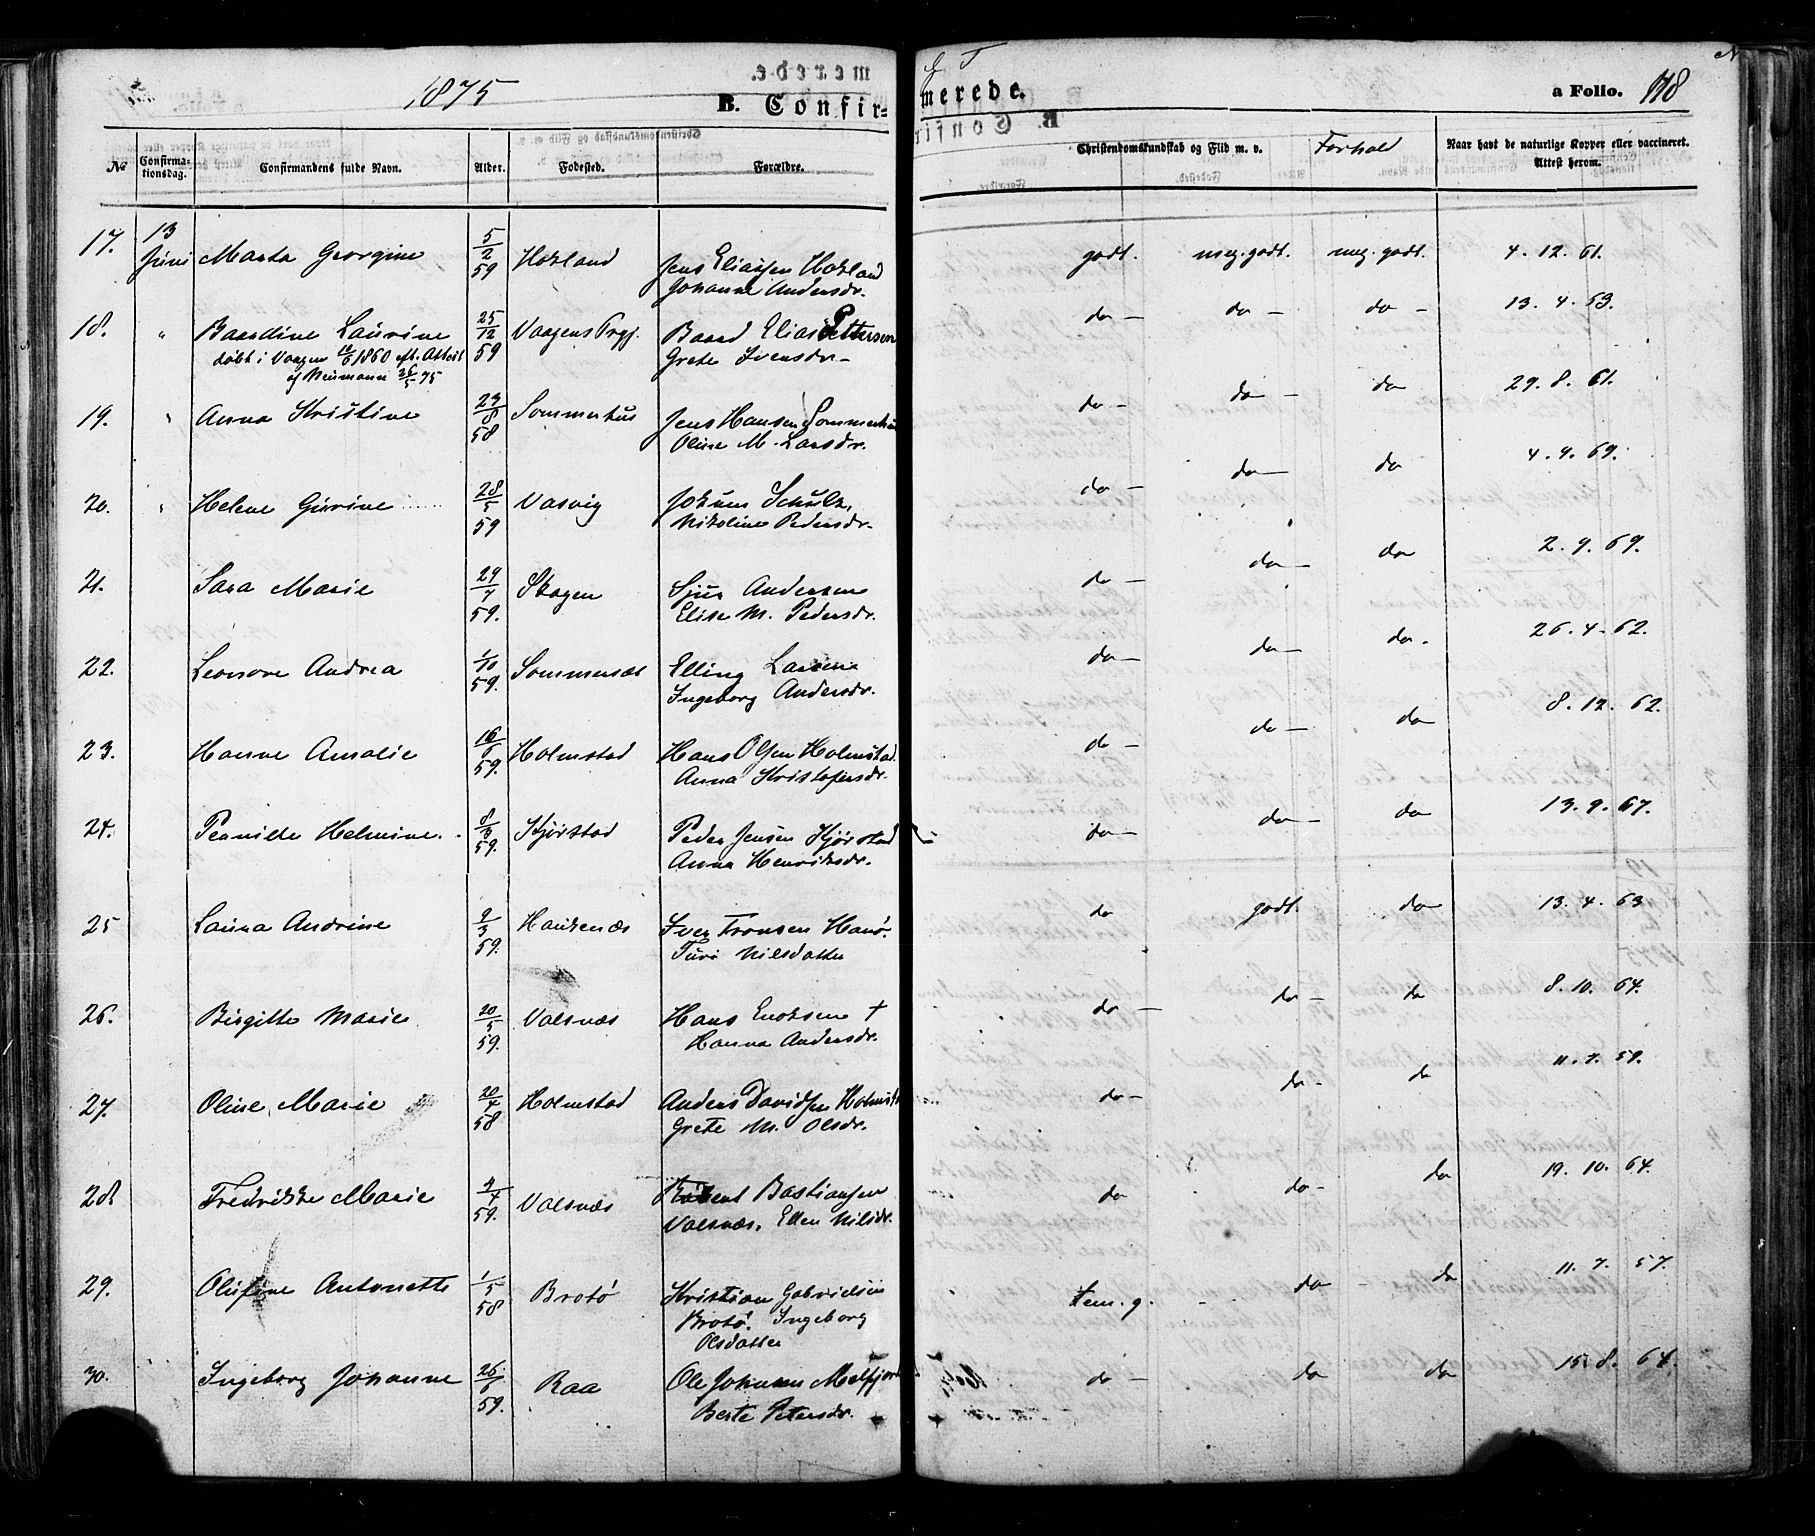 1875
B. Confirmerede.
a Folio. 118
No Confirmationsdag. Confirmandens fulde Navn. Alder. Fodested. Forældre. Christendomskundskab og Flid m. v. Forhold Naar havt de naturlige Kopper eller vaccineret. Attest herom.
17. 13 Juni Marta Georgine 5/2 59 Hokland Jens Eliassen Hokland godt. meg. godt. meg. godt. 4. 12. 61.
Johanne Andersdr.
18. " Baardine Laurine 25/12 59 Vaagens Prgj. Baard Elias Pettersen do - do - do - 13. 4. 53.
døbt i Vaagen 1860 eft. Attest Grete Iversdr.
af Neumann 26/5 75
19. " Anna Kristine 29/8 58 Sommerhus Jens Hansen Sommerhus do - do - do 29. 8. 61.
Oline M. Larsdr.
20. " Helene Gurine 28/5 59 Vasvig Jokum Schultz, do - do - do 4. 9. 69.
Nikoline Pedersdr.
21. Sara Marie 29/7 59. Skagen Sjur Andersen do - do - do 2. 9. 69.
Elise M. Pedersdr.
22. Leonore Andrea 1/10 59. Sommersæt Elling Larsen do - do - do. 26. 4. 62.
Ingeborg Andersdr.
23. Hanne Amalie 16/6 59. Holmstad Hans Olsen Holmstad. do - do - do 8. 12. 62.
Anna Kristofersdr.
24. Pernille Helmine. 8/3 59. Kjørstad Peder Jensen Kjørstad do - do - do 13. 9. 67.
Anna Henriksdr.
25 Laura Andrine 9/3 59. Hauknæs Iver Tronsen Hanø. do godt. do 13. 4. 63
Turi Nilsdatter
26. Birgitte Marie 20/5 59. Valsnæs Hans Enoksen † do - do - do 8. 10. 64.
Hanna Andersdr.
27. Oline Marie 20/4 58 Holmstad Anders Davidsen Holmst. do - do - do 11. 7. 59.
Grete M. Olsdr.
28. Fredrikke Marie 4/4 59. Valsnæs Robert Bastiansen do do - do 19. 10. 64.
Valsnæs. Ellen Nilsdr.
29. Olufine Antonette 1/5 58 Brotø Kristian Gabrielsen tem. g. - do - do 11. 7. 57.
Brotø. Ingeborg
Olsdatter
30. Ingeborg Johanne 26/6 59. Raa Ole Johansen Melfjord do - do do 15. 8. 64.
Berte Petersdr.